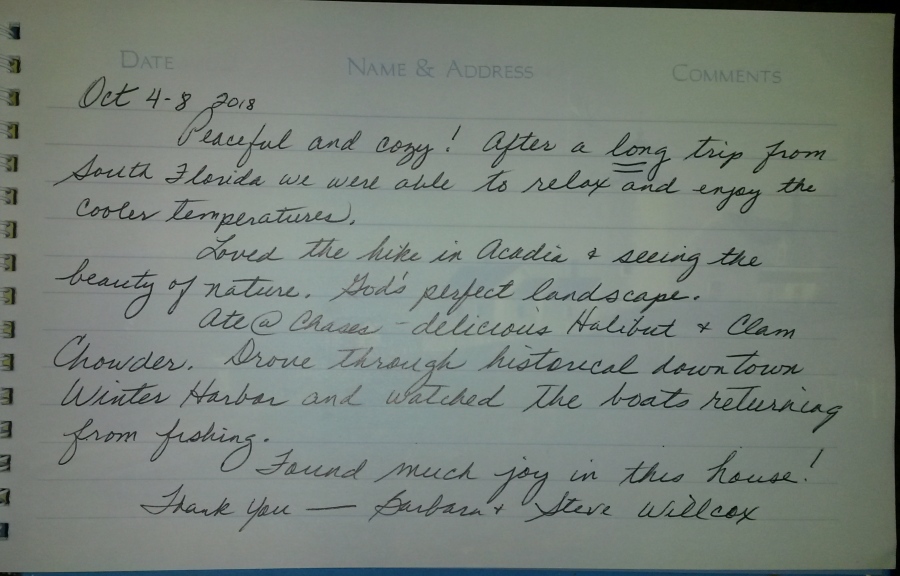 DATE NAME & ADDRESS COMMENTS
Oct 4-8 2018
Peaceful and cozy! After a long trip from
South Florida we were able to relax and enjoy the
cooler temperatures.
Loved the hike in Acadia + seeing the
beauty of nature. God's perfect landscape.
Ate @ Chases - delicious Halibut + Clam
Chowder. Drove through historical downtown
Winter Harbor and watched the boats returning
from fishing.
Found much joy in this house!
Thank you — Barbara + Steve Willcox